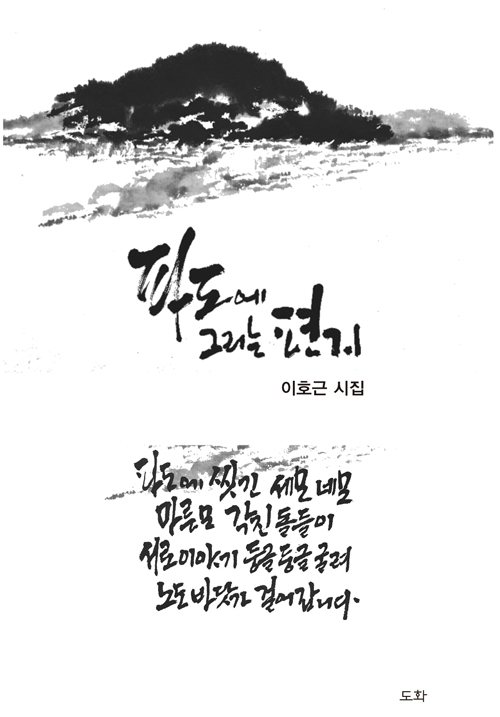 파도에
그리는 편지
이호근 시집
파도에 씻긴 세모 네모
마름모 각진 돌들이
서로 이야기 둥글둥글 굴려
노도 바닷가 걸어갑니다.
도화